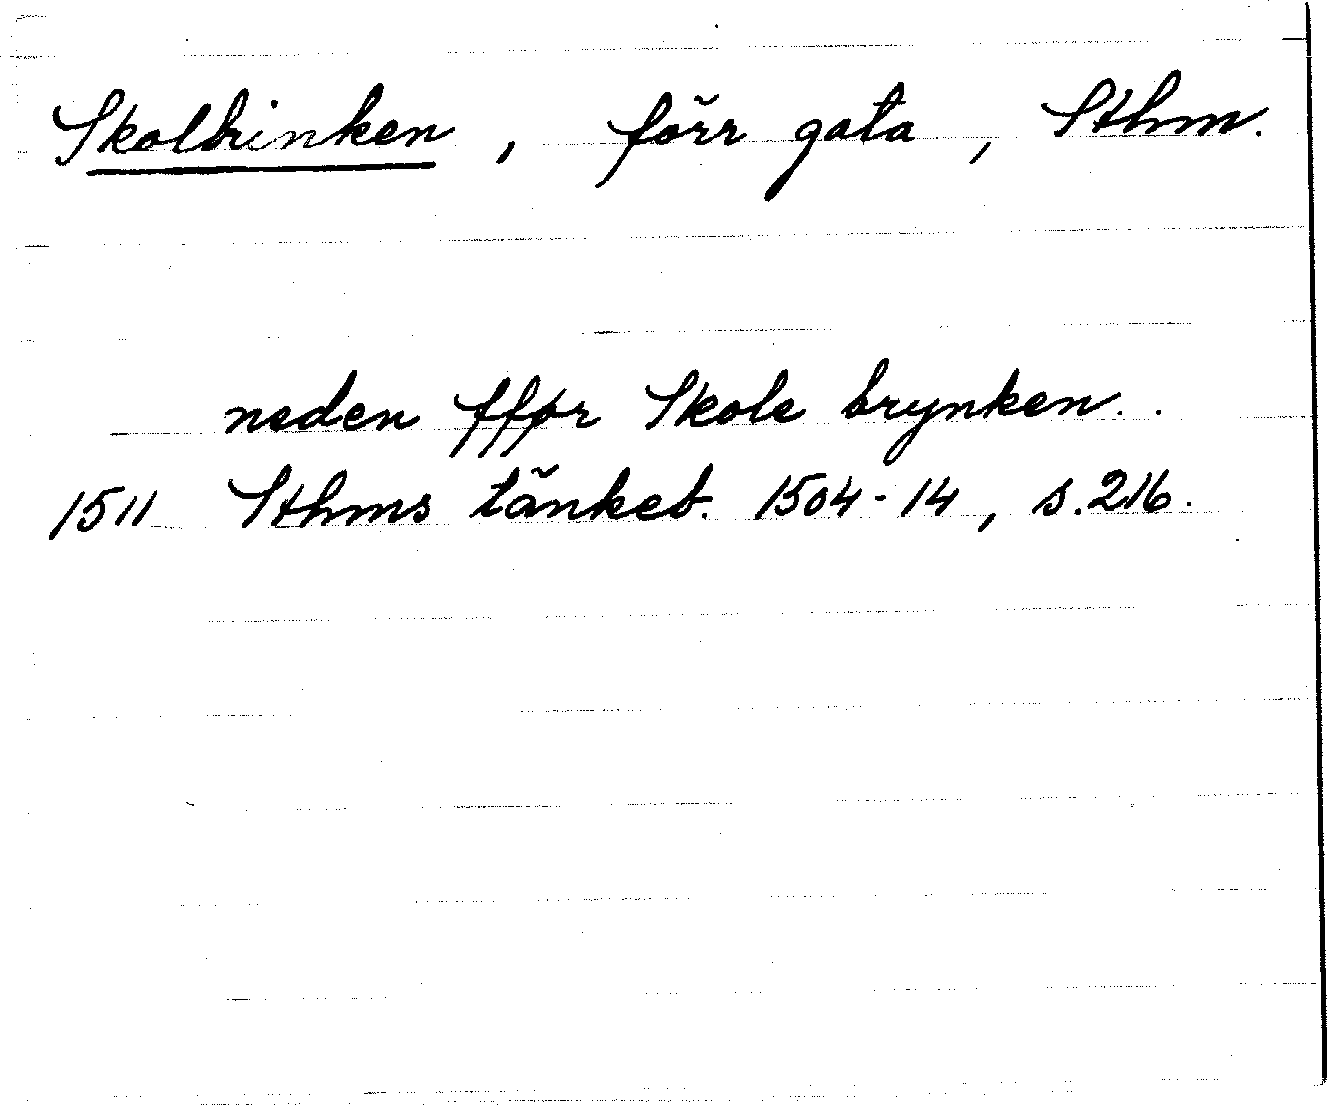 Skolbrinken, förr gata, Sthm.
neden fför Skole brynken.
1511 Sthms tänkeb. 1504-14, s. 216.